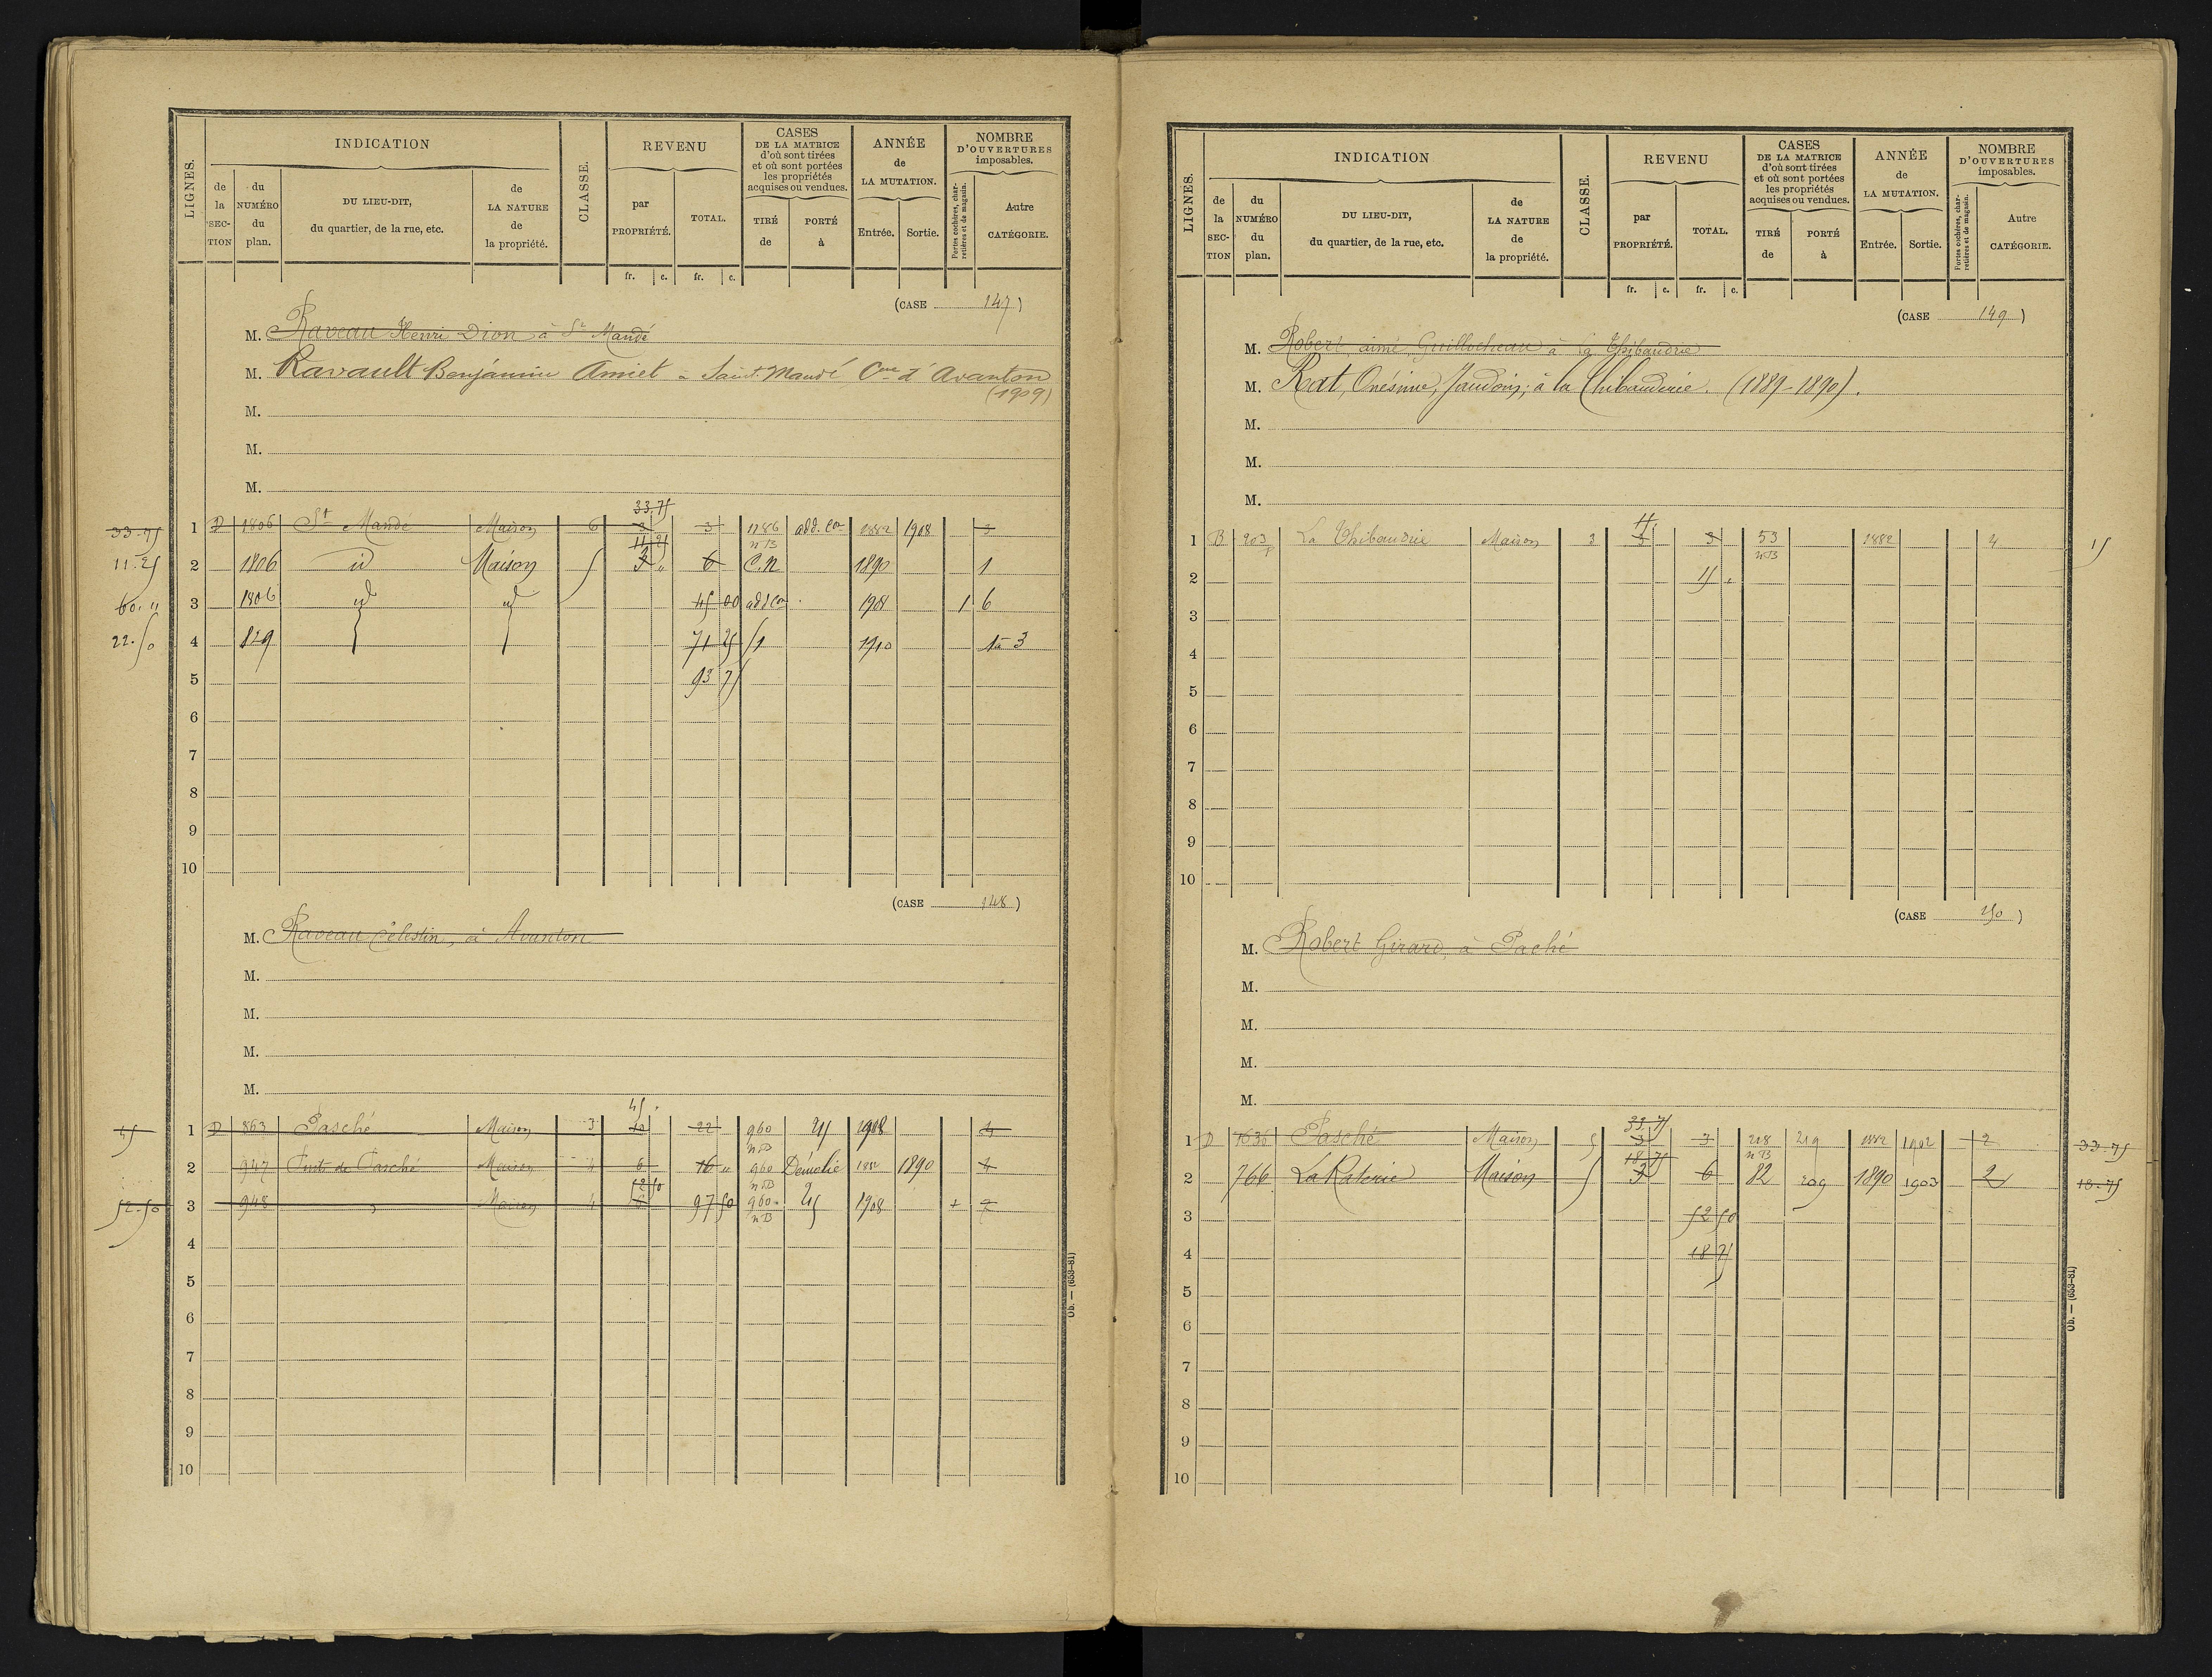 LIGNES.
INDICATION
de la SEC-TION
du NUMÉRO du plan.
DU LIEU-DIT, du quartier, de la rue, etc.
de LA NATURE de la propriété.
CLASSE.
REVENU
par PROPRIÉTÉ.
TOTAL.
fr. c. fr. c.
CASES
DE LA MATRICE
d'où sont tirées
et où sont portées
les propriétés
acquises ou vendues.
TIRÉ de
PORTÉ à
ANNÉE
de
LA MUTATION.
Entrée. Sortie.
NOMBRE
D'OUVERTURES
imposables.
Portes cochères, charretières et de magasin.
Autre CATÉGORIE.
(CASE 147)
M. Raveau Henri Dion à St Mandé
M. Ravault Benjamin Amiet à Saint Mandé Cne d'Avanton
(1909)
M.
M.
M.
33.75
33-75 1 D 1806 St Mandé Maison 6 3 3 1786 add. con 1882 1908 3
11 25 n B
11.25 2 1806 id Maison 5 3 " 6 C.N 1890 1
60. " 3 1806 id id 45 00 add con 1908 1 6
22.50 4 829 71 25 51 1910 3
5 93 75
6
7
8
9
10
(CASE 148)
M. Raveau Célestin, à Avanton
M.
M.
M.
M.
45 .
45 1 D 863 Pasché Maison 3 10 22 960 n B 1908
2 947 Puits de Pasché Maison 4 6 16 " 960 n B Démolie 1882 1890
52 50
52-50 3 948 Maison 4 97 50 960 n B 1908
4
5
6
7
8
9
10
Ob. — (653-81)
LIGNES.
INDICATION
de la SEC-TION
du NUMÉRO du plan.
DU LIEU-DIT, du quartier, de la rue, etc.
de LA NATURE de la propriété.
CLASSE.
REVENU
par PROPRIÉTÉ.
TOTAL.
fr. c. fr. c.
CASES
DE LA MATRICE
d'où sont tirées
et où sont portées
les propriétés
acquises ou vendues.
TIRÉ de
PORTÉ à
ANNÉE
de
LA MUTATION.
Entrée. Sortie.
NOMBRE
D'OUVERTURES
imposables.
Portes cochères, charretières et de magasin.
Autre CATÉGORIE.
(CASE 149)
M. Robert aimé Guillocheau à la Thibaudrie
M. Rat, Onésime, Jaudoin; à la Thibauderie. (1889-1890).
M.
M.
M.
15.
1 B 203 p La Thibaudrie Maison 3 3 3 53 n B 1882 4 15
2 15 "
3
4
5
6
7
8
9
10
(CASE 150)
M. Robert Girard, à Paché
M.
M.
M.
M.
33.75
1 D 1636 Pasché Maison 5 3 3 218 n B 219 1882 1902 2 33-75
18.75
2 766 La Raterie Maison 5 3 6 82 209 1890 1903 2 18-75
3 52 50
4 18 75
5
6
7
8
9
10
Ob. — (653-81)